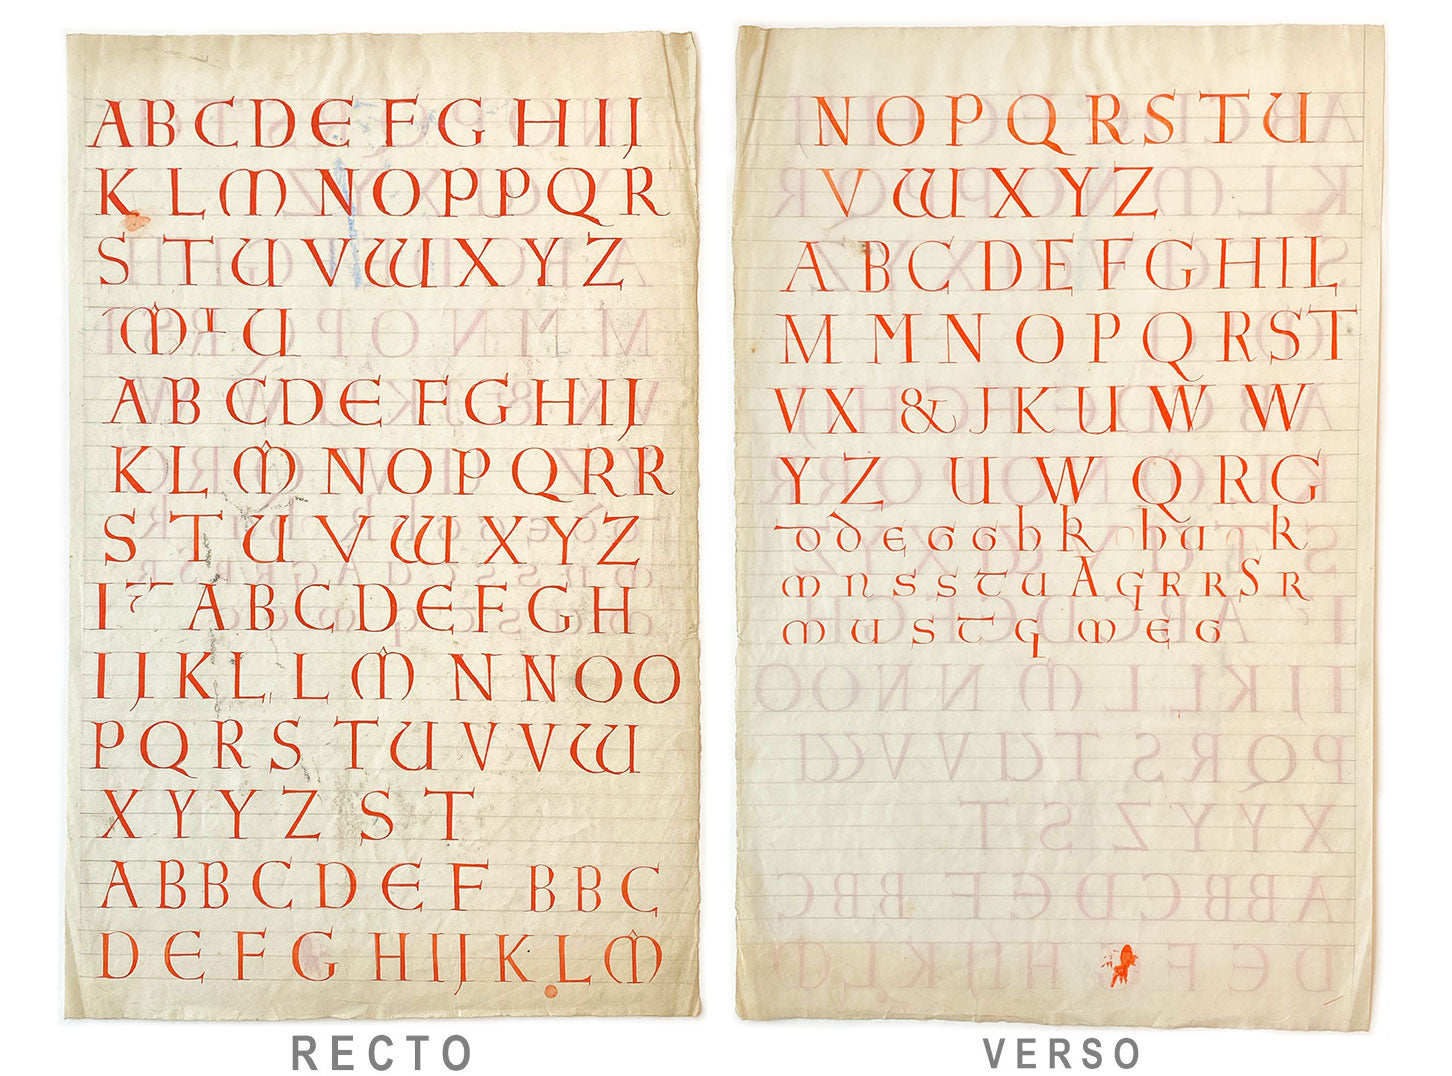 ABCDEFG HIJ
KLMNOPPQR
STUVWXYZ
M L U
AB CDEFGHIJ
KLM NOP QRR
STUVWXYZ
I ABCDEFGH
IJKL L M N NOO
PQRS TUVVW
XYYZ ST
ABBCDEF BBC
DEFG HIJKLM
RECTO
NOPQRSTU
VWXYZ
ABCDEFGHIL
M MN OPQRST
VX & JKUW W
YZ U W QRG
d d E G G h k h u r k
m n s s t u A G R R S R
m u s t q m e G
VERSO